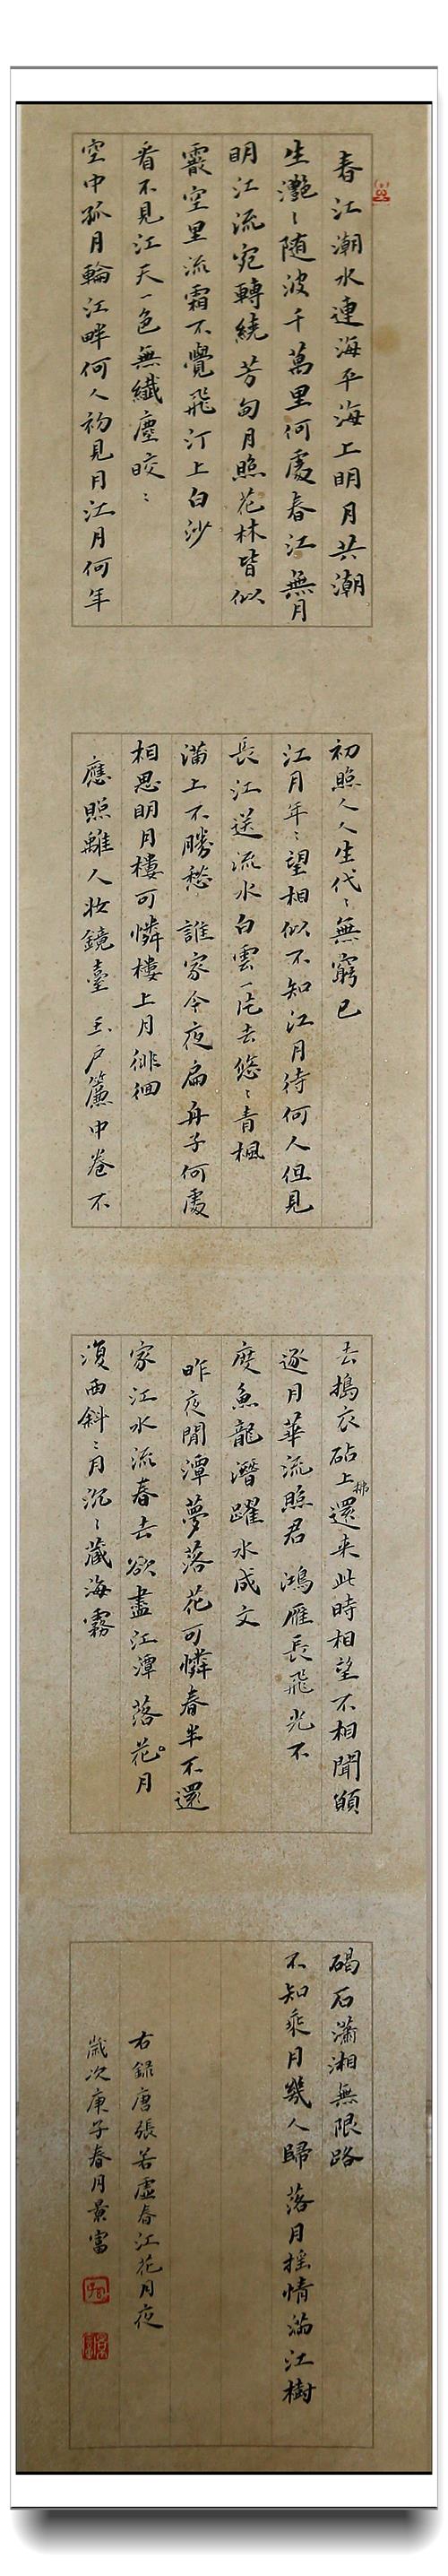 春江潮水連海平海上明月共潮
生灔〻随波千萬里何處春江無月
明江流宛轉繞芳甸月照花林皆似
霰空里流霜不覺飛汀上白沙
看不見江天一色無纖塵皎〻
空中孤月輪江畔何人初見月江月何年
初照人人生代〻無窮已
江月年〻望相似不知江月待何人但見
長江送流水白雲一片去悠〻青楓
浦上不勝愁誰家今夜扁舟子何處
相思明月樓可憐樓上月徘徊
應照離人妝鏡臺玉户簾中卷不
去搗衣砧上拂還来此時相望不相聞願
逐月華流照君鴻雁長飛光不
度魚龍潛躍水成文
昨夜閒潭夢落花可憐春半不還
家江水流春去欲盡江潭落花月
復西斜〻月沉〻藏海霧
碣石瀟湘無限路
不知乘月幾人歸落月摇情滿江樹
右錄唐張若虛春江花月夜
歲次庚子春月景富